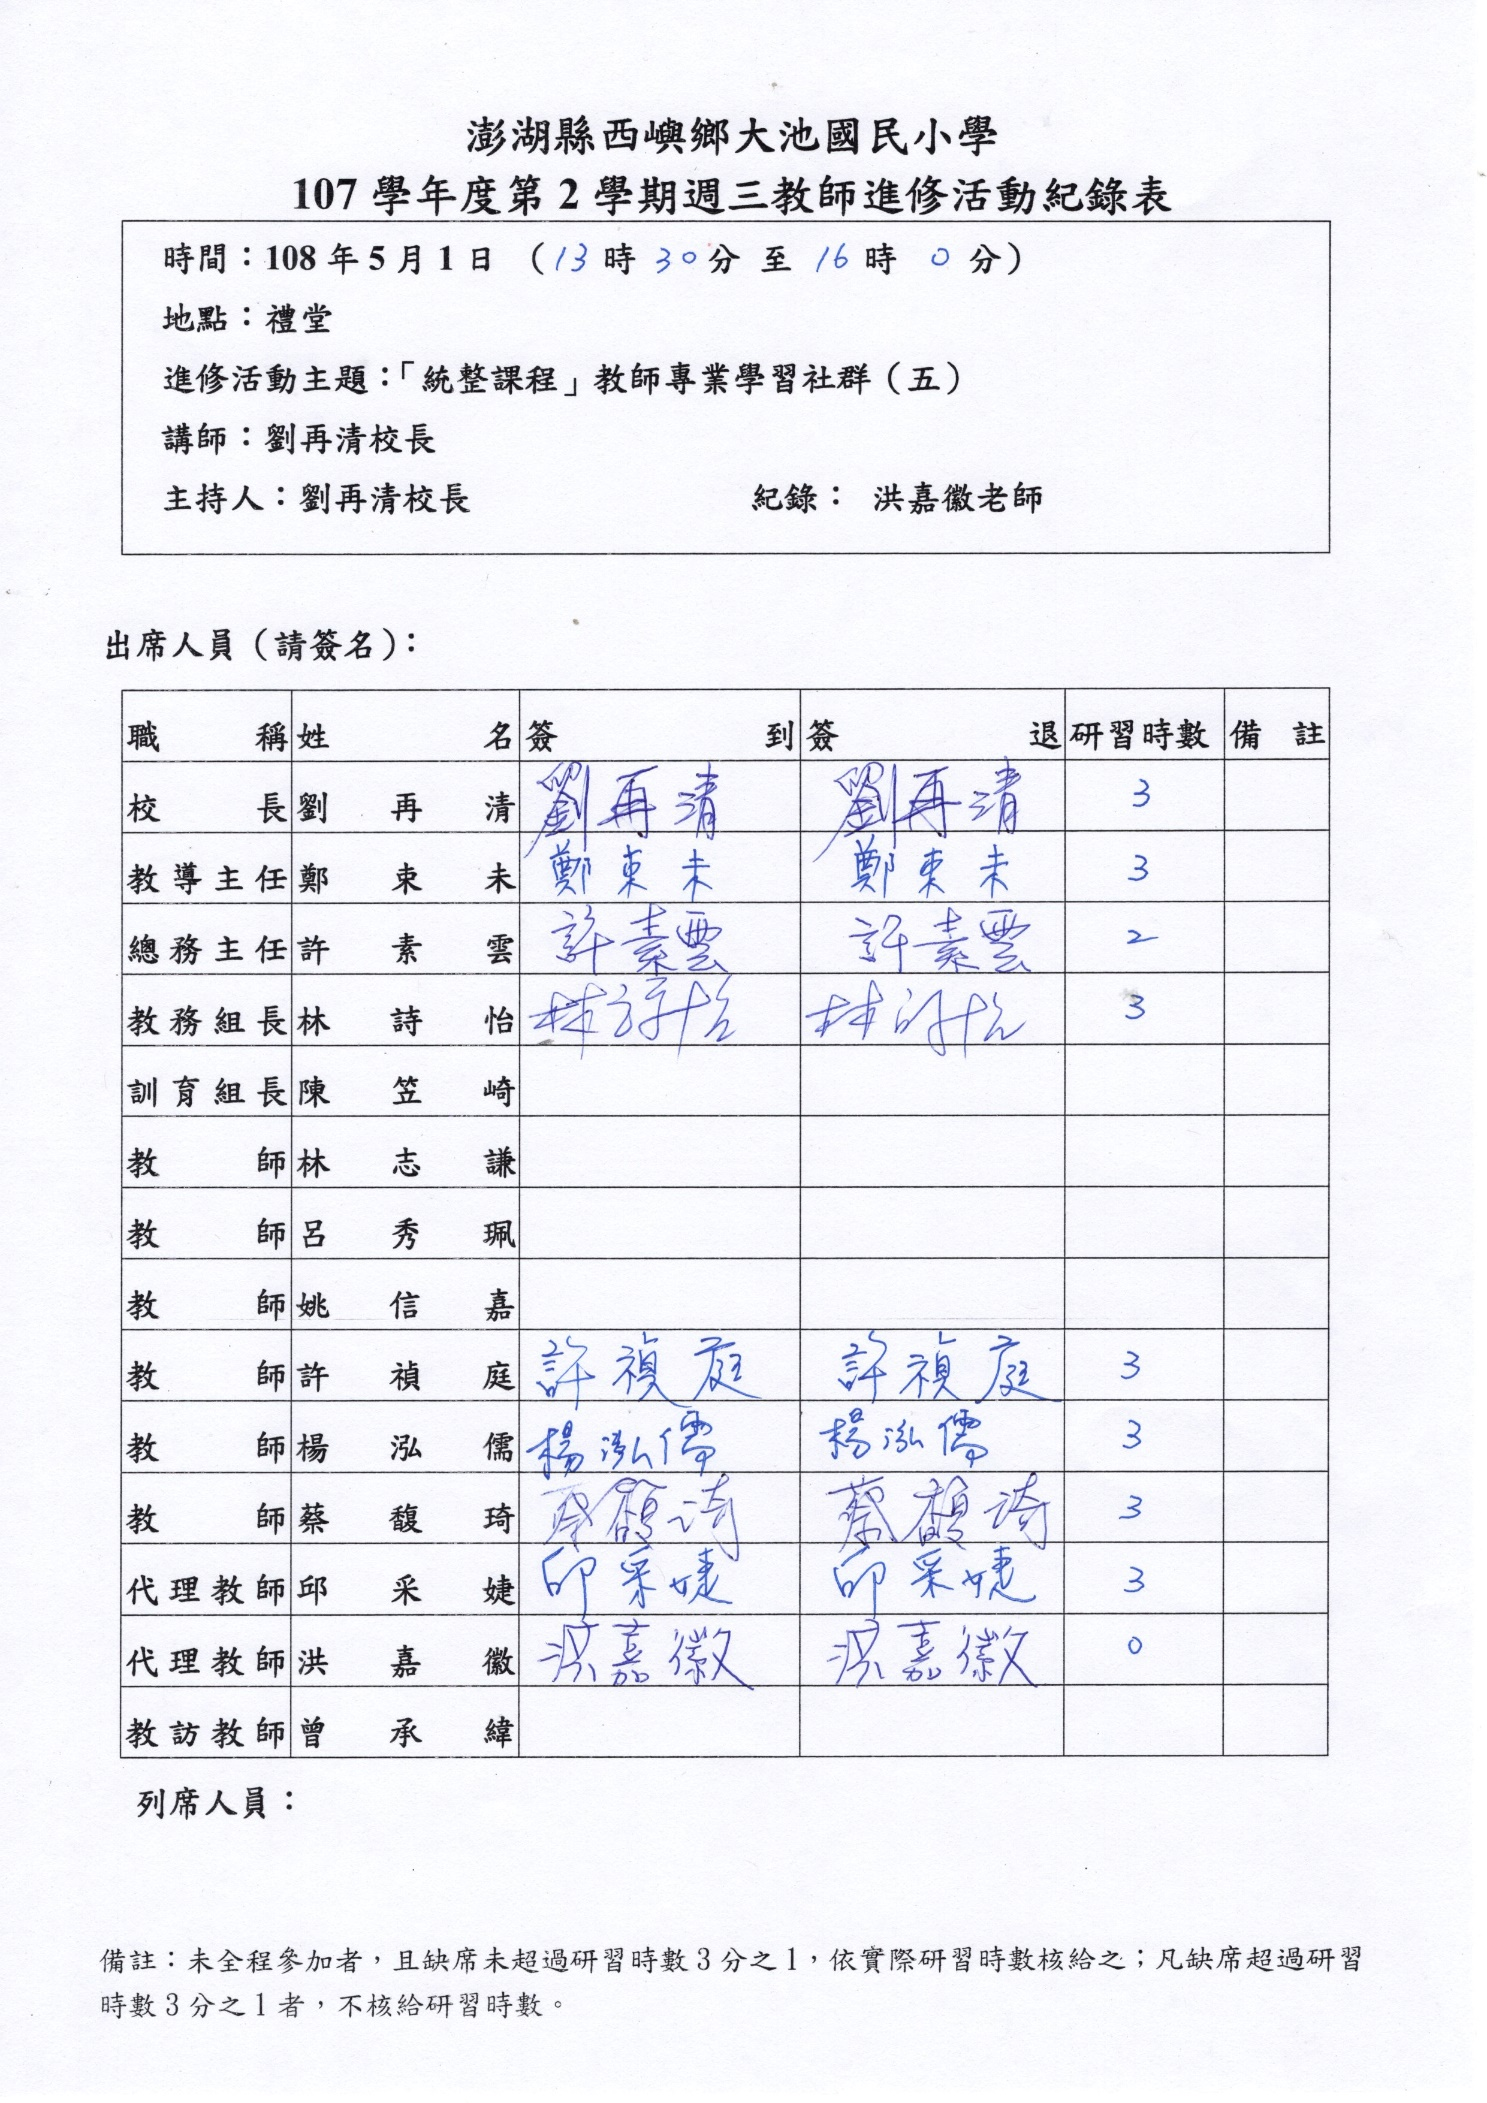 澎湖縣西嶼鄉大池國民小學
107學年度第2學期週三教師進修活動紀錄表
時間：108年5月1日（13時30分至16時0分）
地點：禮堂
進修活動主題：「統整課程」教師專業學習社群（五）
講師：劉再清校長
主持人：劉再清校長 紀錄： 洪嘉徽老師
出席人員（請簽名）：
職稱 姓名 簽到 簽退 研習時數 備註
校長 劉再清 劉再清 劉再清 3
教導主任 鄭束未 鄭束未 鄭束未 3
總務主任 許素雲 許素雲 許素雲 2
教務組長 林詩怡 林詩怡 林詩怡 3
訓育組長 陳笠崎
教師 林志謙
教師 呂秀珮
教師 姚信嘉
教師 許禎庭 許禎庭 許禎庭 3
教師 楊泓儒 楊泓儒 楊泓儒 3
教師 蔡馥琦 蔡馥琦 蔡馥琦 3
代理教師 邱采婕 邱采婕 邱采婕 3
代理教師 洪嘉徽 洪嘉徽 洪嘉徽 0
教訪教師 曾承緯
列席人員：
備註：未全程參加者，且缺席未超過研習時數3分之1，依實際研習時數核給之；凡缺席超過研習
時數3分之1者，不核給研習時數。